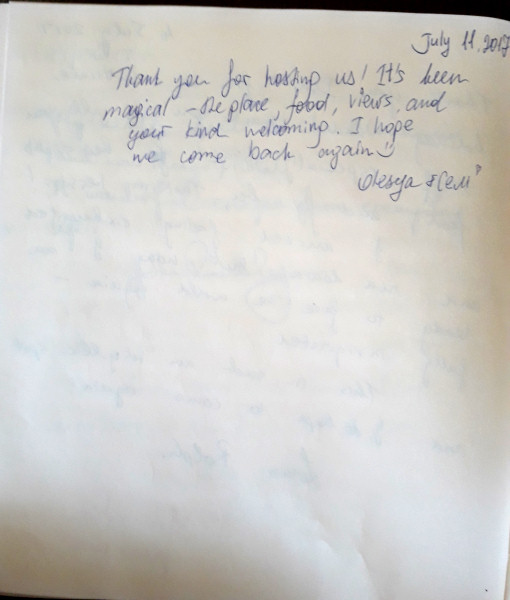 July 11, 2017
Thank you for hosting us! It's been
magical - the place, food, views, and
your kind welcoming. I hope
we come back again
Olesya &